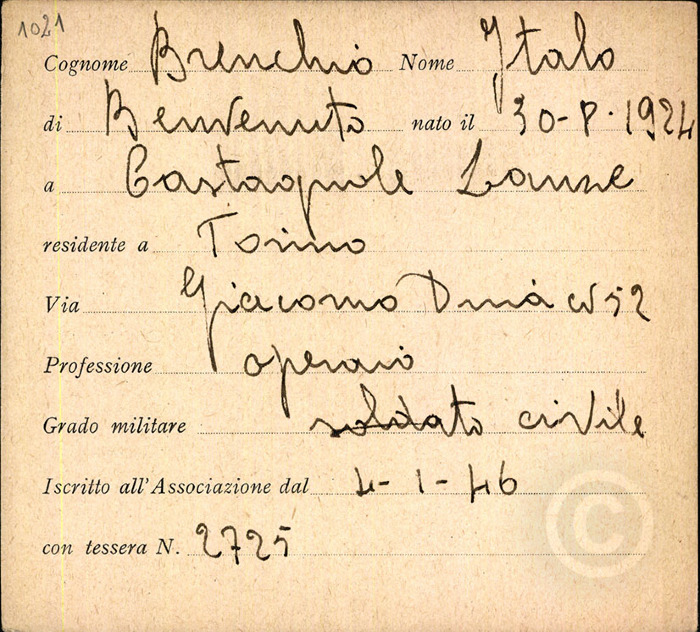 1021
Cognome Brenchio Nome Italo
di Benvenuto nato il 30-8-1924
a Castagnole Lanze
residente a Torino
Via Giacomo Dinà N 52
Professione operaio
Grado militare soldato civile
Iscritto all'Associazione dal 4-1-46
con tessera N. 2725
©